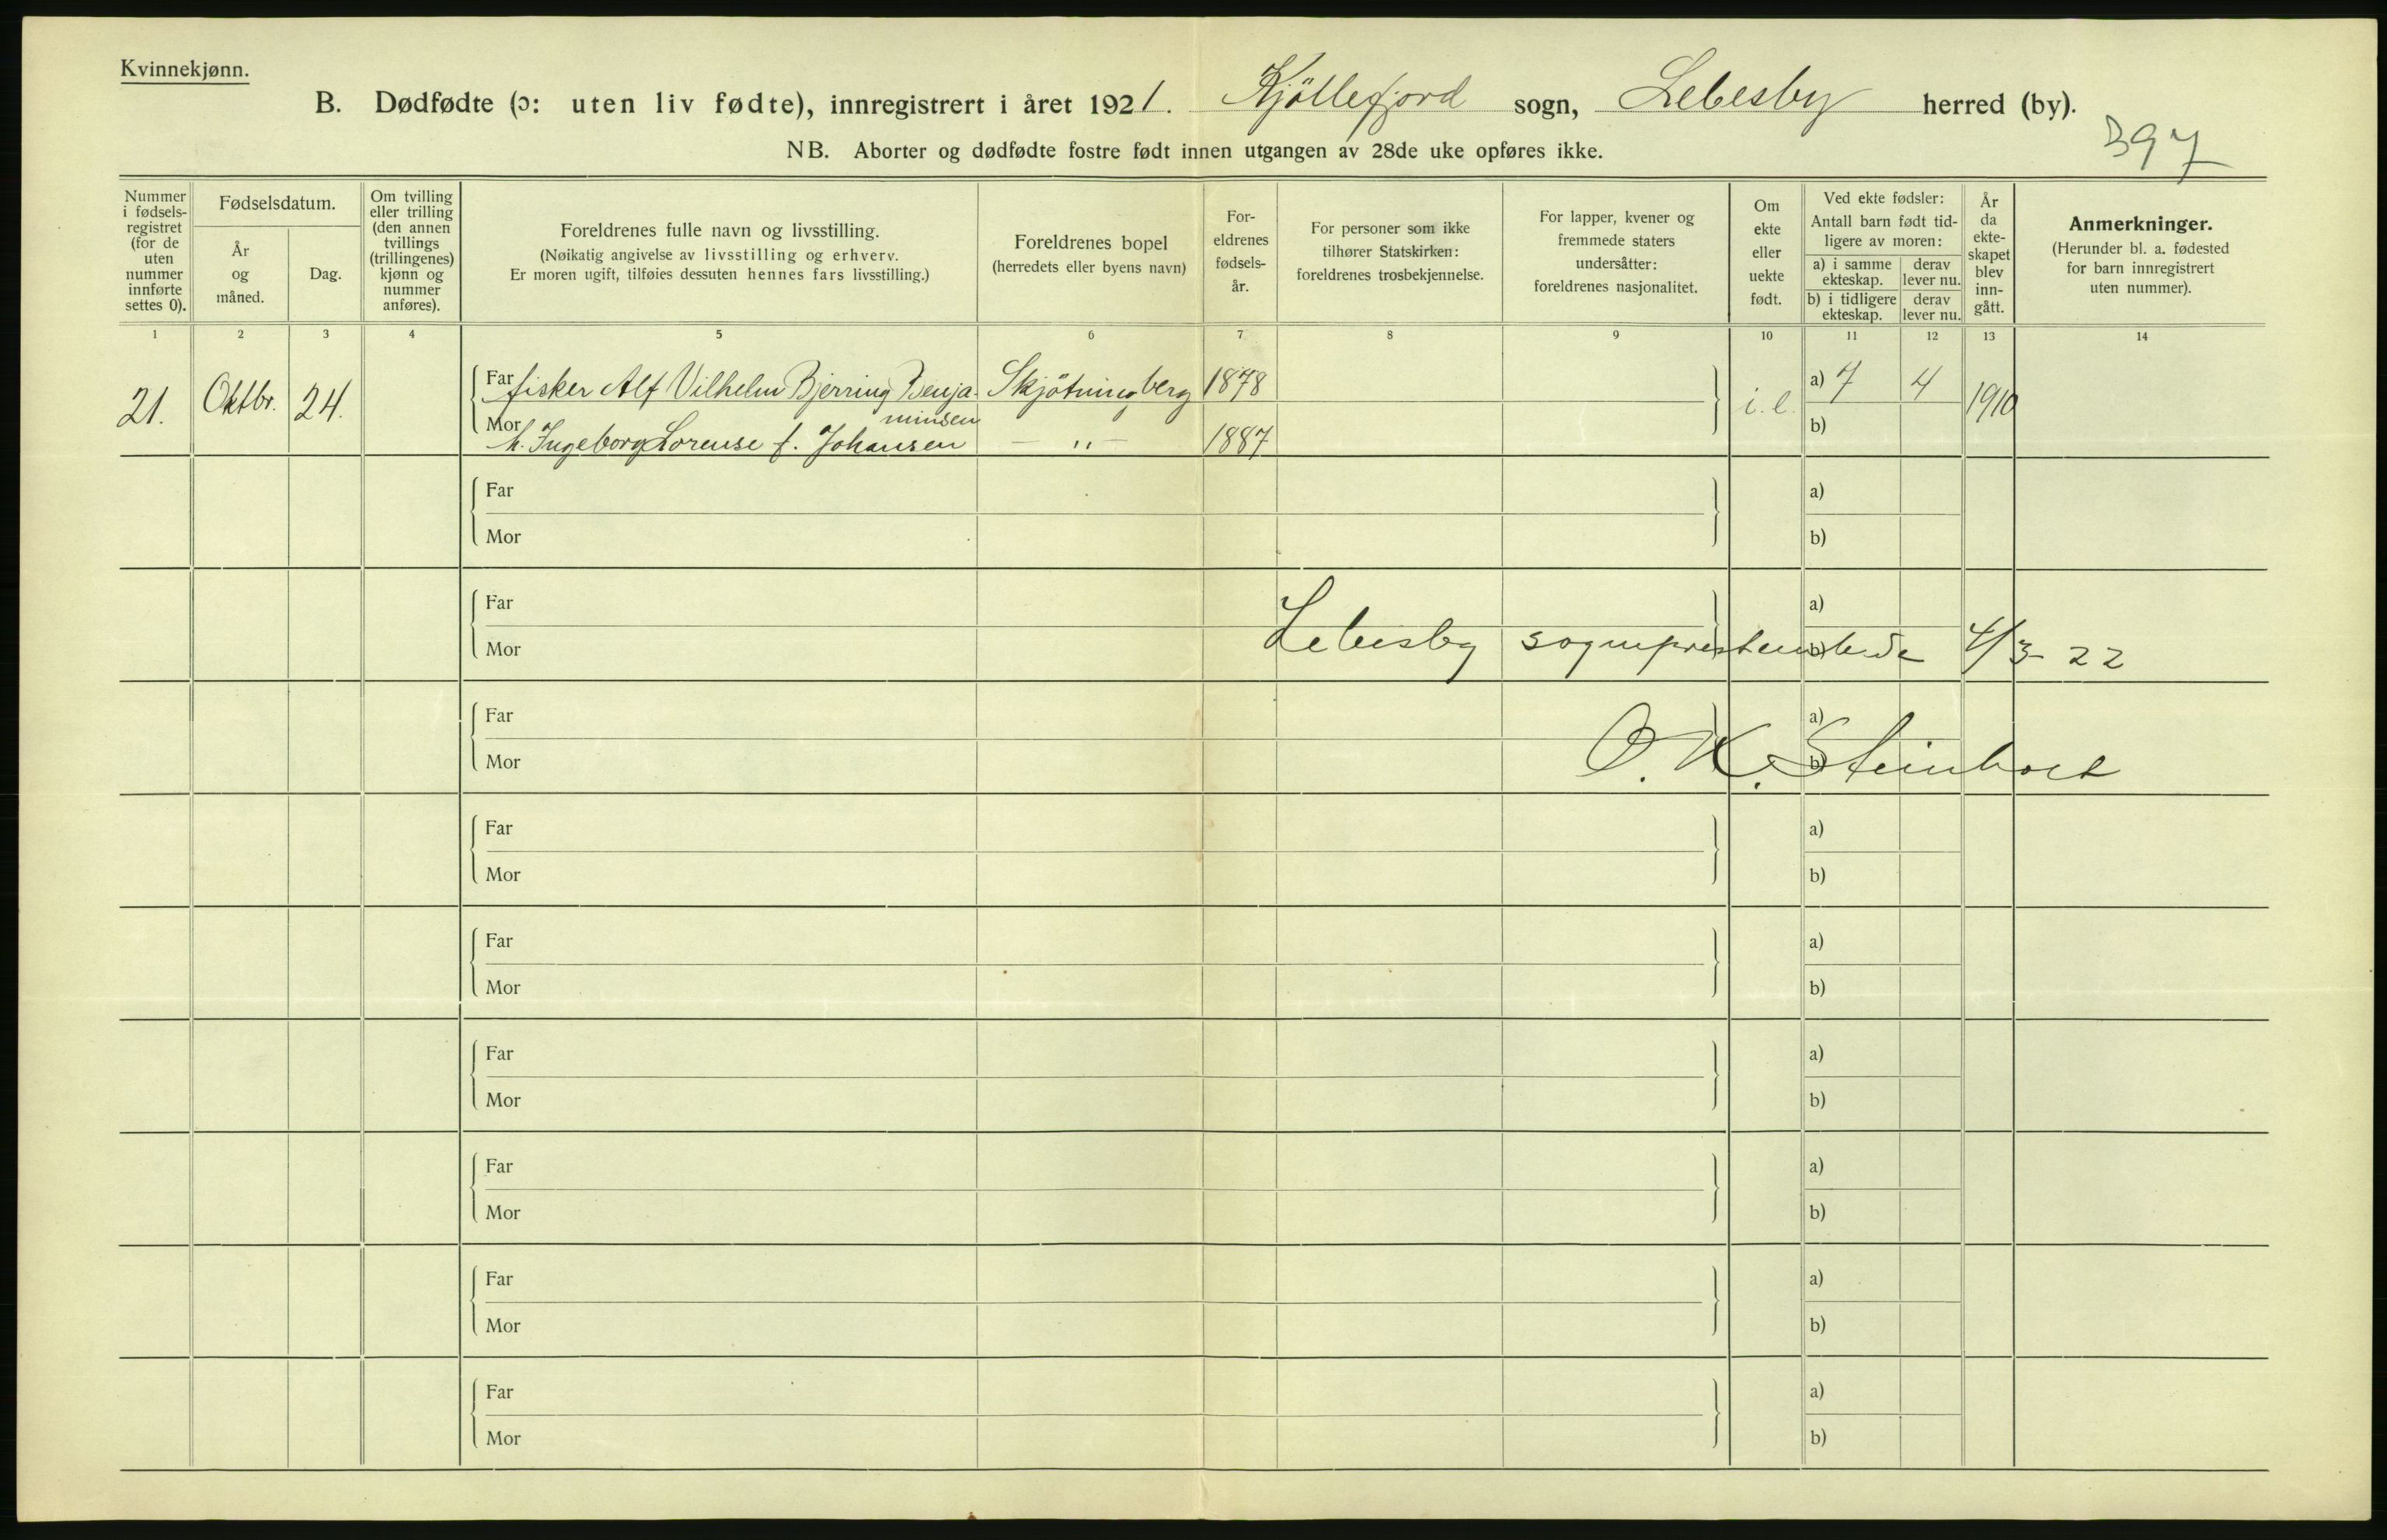 Kvinnekjønn.
B. Dødfødte (ɔ: uten liv fødte), innregistrert i året 1921. Kjöllefjord sogn, Lebesby herred (by).
NB. Aborter og dødfødte fostre født innen utgangen av 28de uke opføres ikke.
397
Nummer i fødsels- registret (for de uten nummer innførte settes 0).
Fødselsdatum.
År og måned.
Dag.
Om tvilling eller trilling (den annen tvillings (trillingenes) kjønn og nummer anføres).
Foreldrenes fulle navn og livsstilling.
(Nøikatig angivelse av livsstilling og erhverv.
Er moren ugift, tilføies dessuten hennes fars livsstilling.)
Foreldrenes bopel
(herredets eller byens navn)
For- eldrenes fødsels- år.
For personer som ikke tilhører Statskirken: foreldrenes trosbekjennelse.
For lapper, kvener og fremmede staters undersåtter: foreldrenes nasjonalitet.
Om ekte eller uekte født.
Ved ekte fødsler:
Antall barn født tid- ligere av moren:
a) i samme ekteskap.
derav lever nu.
b) i tidligere ekteskap.
derav lever nu.
År da ekte- skapet blev inn- gått.
Anmerkninger.
(Herunder bl. a. fødested for barn innregistrert uten nummer).
1 2 3 4 5 6 7 8 9 10 11 12 13 14
21. Oktbr. 24. Far fisker Alf Vilhelm Bjerring Benja- Skjötningberg 1878 i. e. a) 7 4 1910
minsen
Mor h. Ingeborg Lorense f. Johansen — " — 1887 b)
Far a)
Mor b)
Far a)
Lebesby sogneprestembede 4/3 22
Mor b)
Far a)
O. K. Steinholt
Mor b)
Far a)
Mor b)
Far a)
Mor b)
Far a)
Mor b)
Far a)
Mor b)
Far a)
Mor b)
Far a)
Mor b)